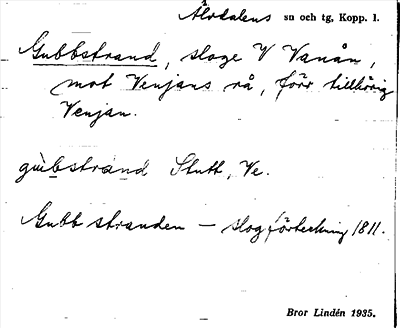 Älvdalens sn och tg, Kopp. l.
Gubbstrand, sloge V Vanån,
mot Venjans rå, förr tillhörig
Venjan.
gùbstrànd Slutt, Ve.
Gubbstranden – slogförteckning 1811.
Bror Lindén 1935.